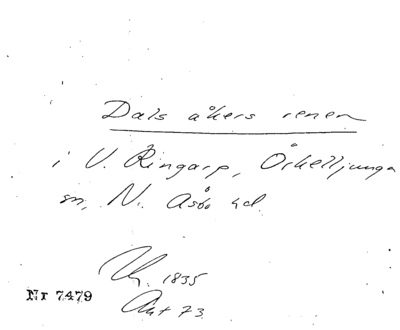 Dals åkers renen
i V. Ringarp, Örkelljunga
sn, N. Åsbo hd.
Uh. 1835
Akt 73.
Nr 7479